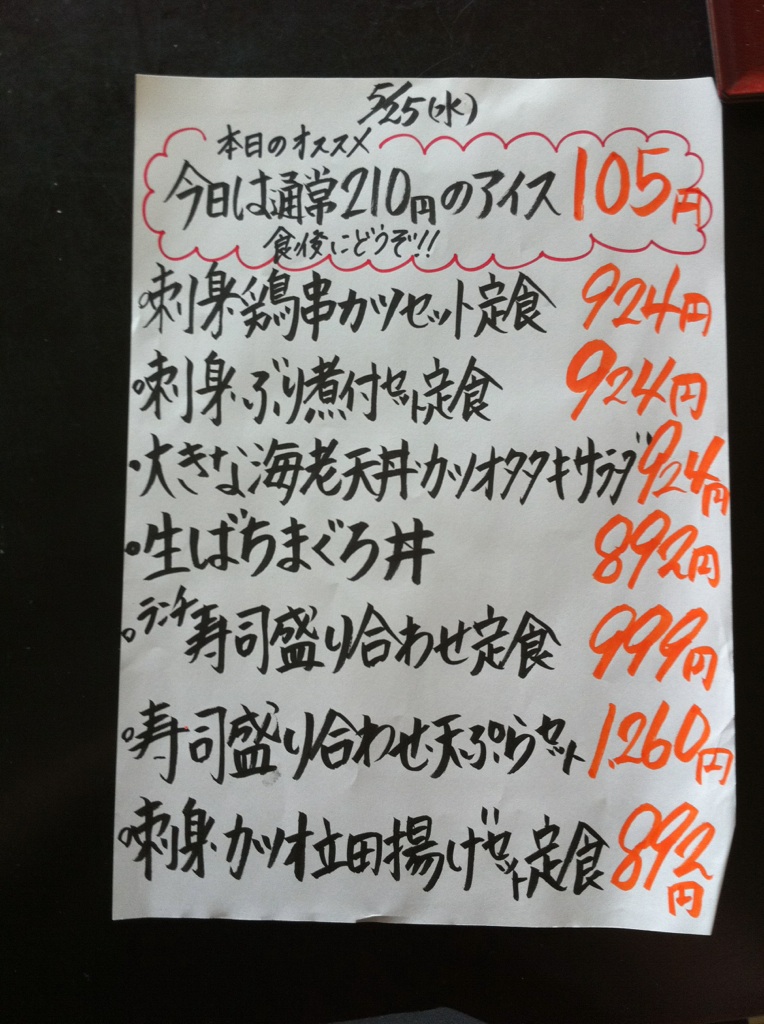 5/25(水)
本日のオススメ
今日は通常210円のアイス 105円
食後にどうぞ!!
・刺身・鶏串カツセット定食 924円
・刺身・ぶり煮付セット定食 924円
・大きな海老天丼・カツオタタキサラダ 924円
・生ばちまぐろ丼 892円
・ランチ寿司盛り合わせ定食 999円
・寿司盛り合わせ・天ぷらセット 1,260円
・刺身・カツオ立田揚げセット定食 892円